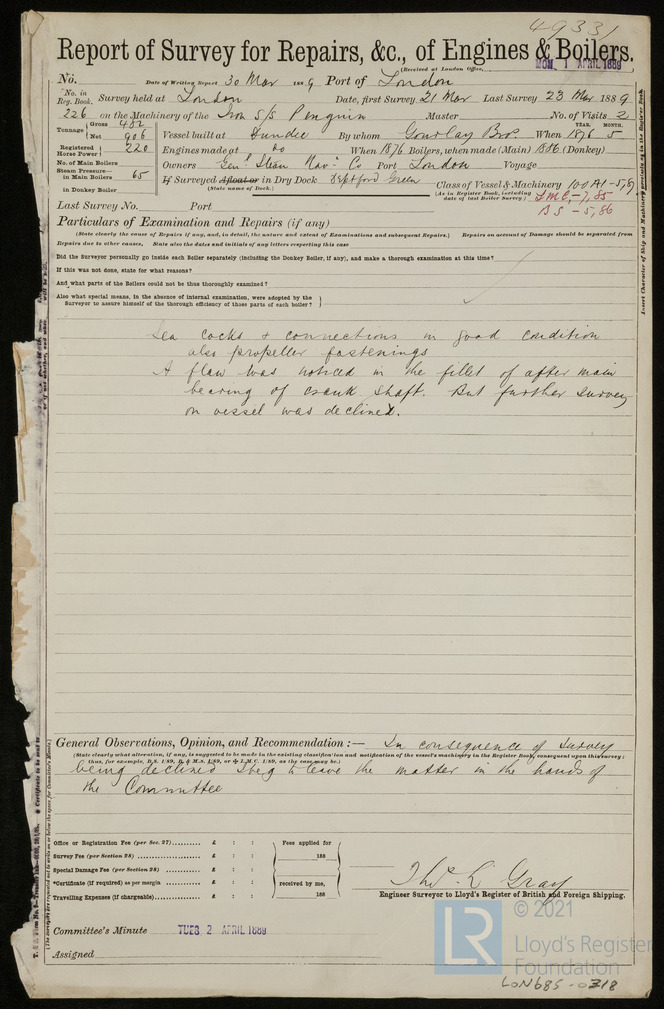 49331
Report of Survey for Repairs, &c., of Engines & Boilers.
(Received at London Office, MON. 1 APRIL 1889
No. Date of Writing Report 30 Mar 1889 Port of London
No. in Reg. Book. Survey held at London Date, first Survey 21 Mar Last Survey 23 Mar 1889
226 on the Machinery of the Iron S/S Penguin Master No. of Visits 2
Tonnage Gross 482 Net 906 Vessel built at Dundee By whom Gourlay Bros. When 1876 YEAR. MONTH. 5
Registered Horse Power 220 Engines made at do When 1876 Boilers, when made (Main) 1886 (Donkey)
No. of Main Boilers Owners Genl Steam Navn Co Port London Voyage
Steam Pressure— in Main Boilers 65 If Surveyed Afloat or in Dry Dock Deptford Green
(State name of Dock.)
in Donkey Boiler
Class of Vessel & Machinery 100A1-5,87
(As in Register Book, including date of last Boiler Survey) LMC-7,85
BS-5,86
Last Survey No. Port
Particulars of Examination and Repairs (if any)
(State clearly the cause of Repairs if any, and, in detail, the nature and extent of Examinations and subsequent Repairs.) Repairs on account of Damage should be separated from
Repairs due to other causes, State also the dates and initials of any letters respecting this case
Did the Surveyor personally go inside each Boiler separately (including the Donkey Boiler, if any), and make a thorough examination at this time?
If this was not done, state for what reasons?
And what parts of the Boilers could not be thus thoroughly examined?
Also what special means, in the absence of internal examination, were adopted by the
Surveyor to assure himself of the thorough efficiency of those parts of each boiler?
Sea cocks & connections in good condition
also propeller fastenings
A flaw was noticed in the fillet of after main
bearing of crank shaft. But further survey
on vessel was declined.
General Observations, Opinion, and Recommendation :— In consequence of survey
(State clearly what alteration, if any, is suggested to be made in the existing classification and notification of the vessel's machinery in the Register Book, consequent upon this survey;
thus, for example, B.S. 1/89, B. & M.S. 1/89, or ✠ L.M.C. 1/89, as the case may be.)
being declined I beg to leave the matter in the hands of
the Committee
Office or Registration Fee (per Sec. 27) £ : : Fees applied for
Survey Fee (per Section 28) £ : : 188
Special Damage Fee (per Section 28) £ : :
*Certificate (if required) as per margin £ : : received by me,
Travelling Expenses (if chargeable) £ : : 188
Thos. L Gray
Engineer Surveyor to Lloyd's Register of British and Foreign Shipping.
Committee's Minute TUES 2 APRIL 1889
Assigned
© 2021
LR
Lloyd's Register
Foundation
LON685-0318
Insert Character of Ship and Machinery precisely as in the Register Book